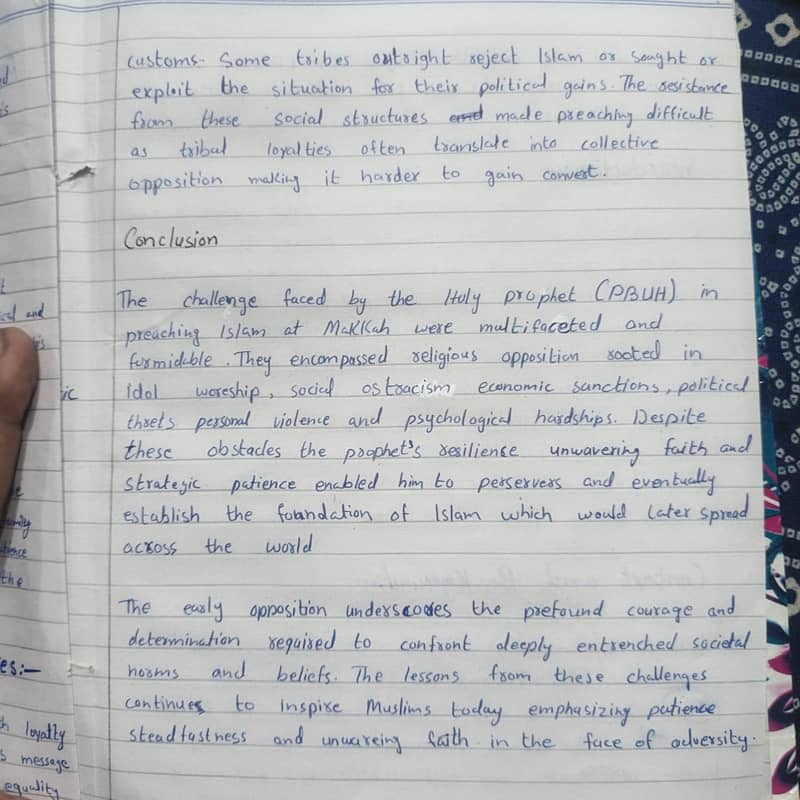 customs. Some tribes outright reject Islam or sought or
exploit the situation for their political gains. The resistance
from these social structures and made preaching difficult
as tribal loyalties often translate into collective
opposition making it harder to gain convert.
Conclusion
The challenge faced by the Holy prophet (PBUH) in
preaching Islam at Makkah were multifaceted and
formidable. They encompassed religious opposition rooted in
idol woreship, social ostracism economic sanctions, political
threts personal violence and psychological hardships. Despite
these obstacles the prophet's resiliense unwavering faith and
strategic patience enabled him to perservers and eventually
establish the foundation of Islam which would later spread
across the world
The early opposition underscores the prefound courage and
determination required to confront deeply entrenched societal
norms and beliefs. The lessons from these challenges
continues to inspire Muslims today emphasizing patience
steadfastness and unwareing faith in the face of adversity.
and
ic
the
es:-
loyalty
message
equality